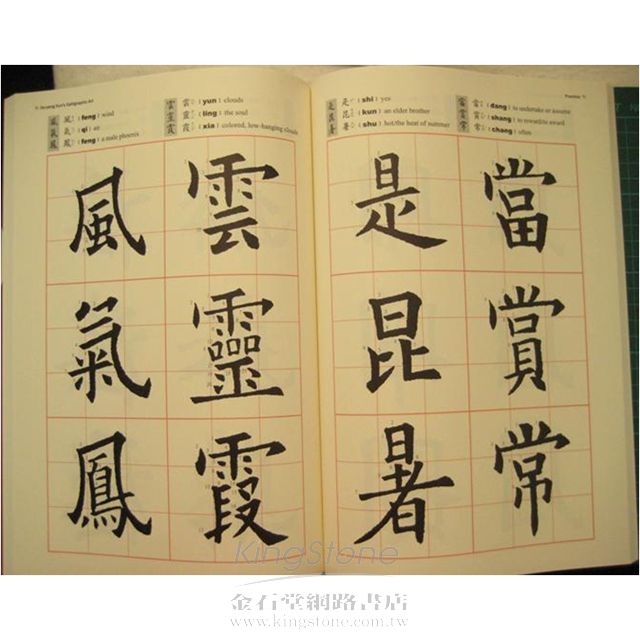 Ou-yang Xun's Calligraphic Art
風 (feng) wind
氣 (qi) air
鳳 (feng) a male phoenix
風氣鳳
雲 (yun) clouds
靈 (ling) the soul
霞 (xia) colored, low-hanging clouds
雲靈霞
風 雲
氣 靈
鳳 霞
Practice
是 (shi) yes
昆 (kun) an elder brother
暑 (shu) hot/the heat of summer
是昆暑
當 (dang) to undertake or assume
賞 (shang) to reward/to award
常 (chang) often
當賞常
是 當
昆 賞
暑 常
KingStone
金石堂網路書店
www.kingstone.com.tw